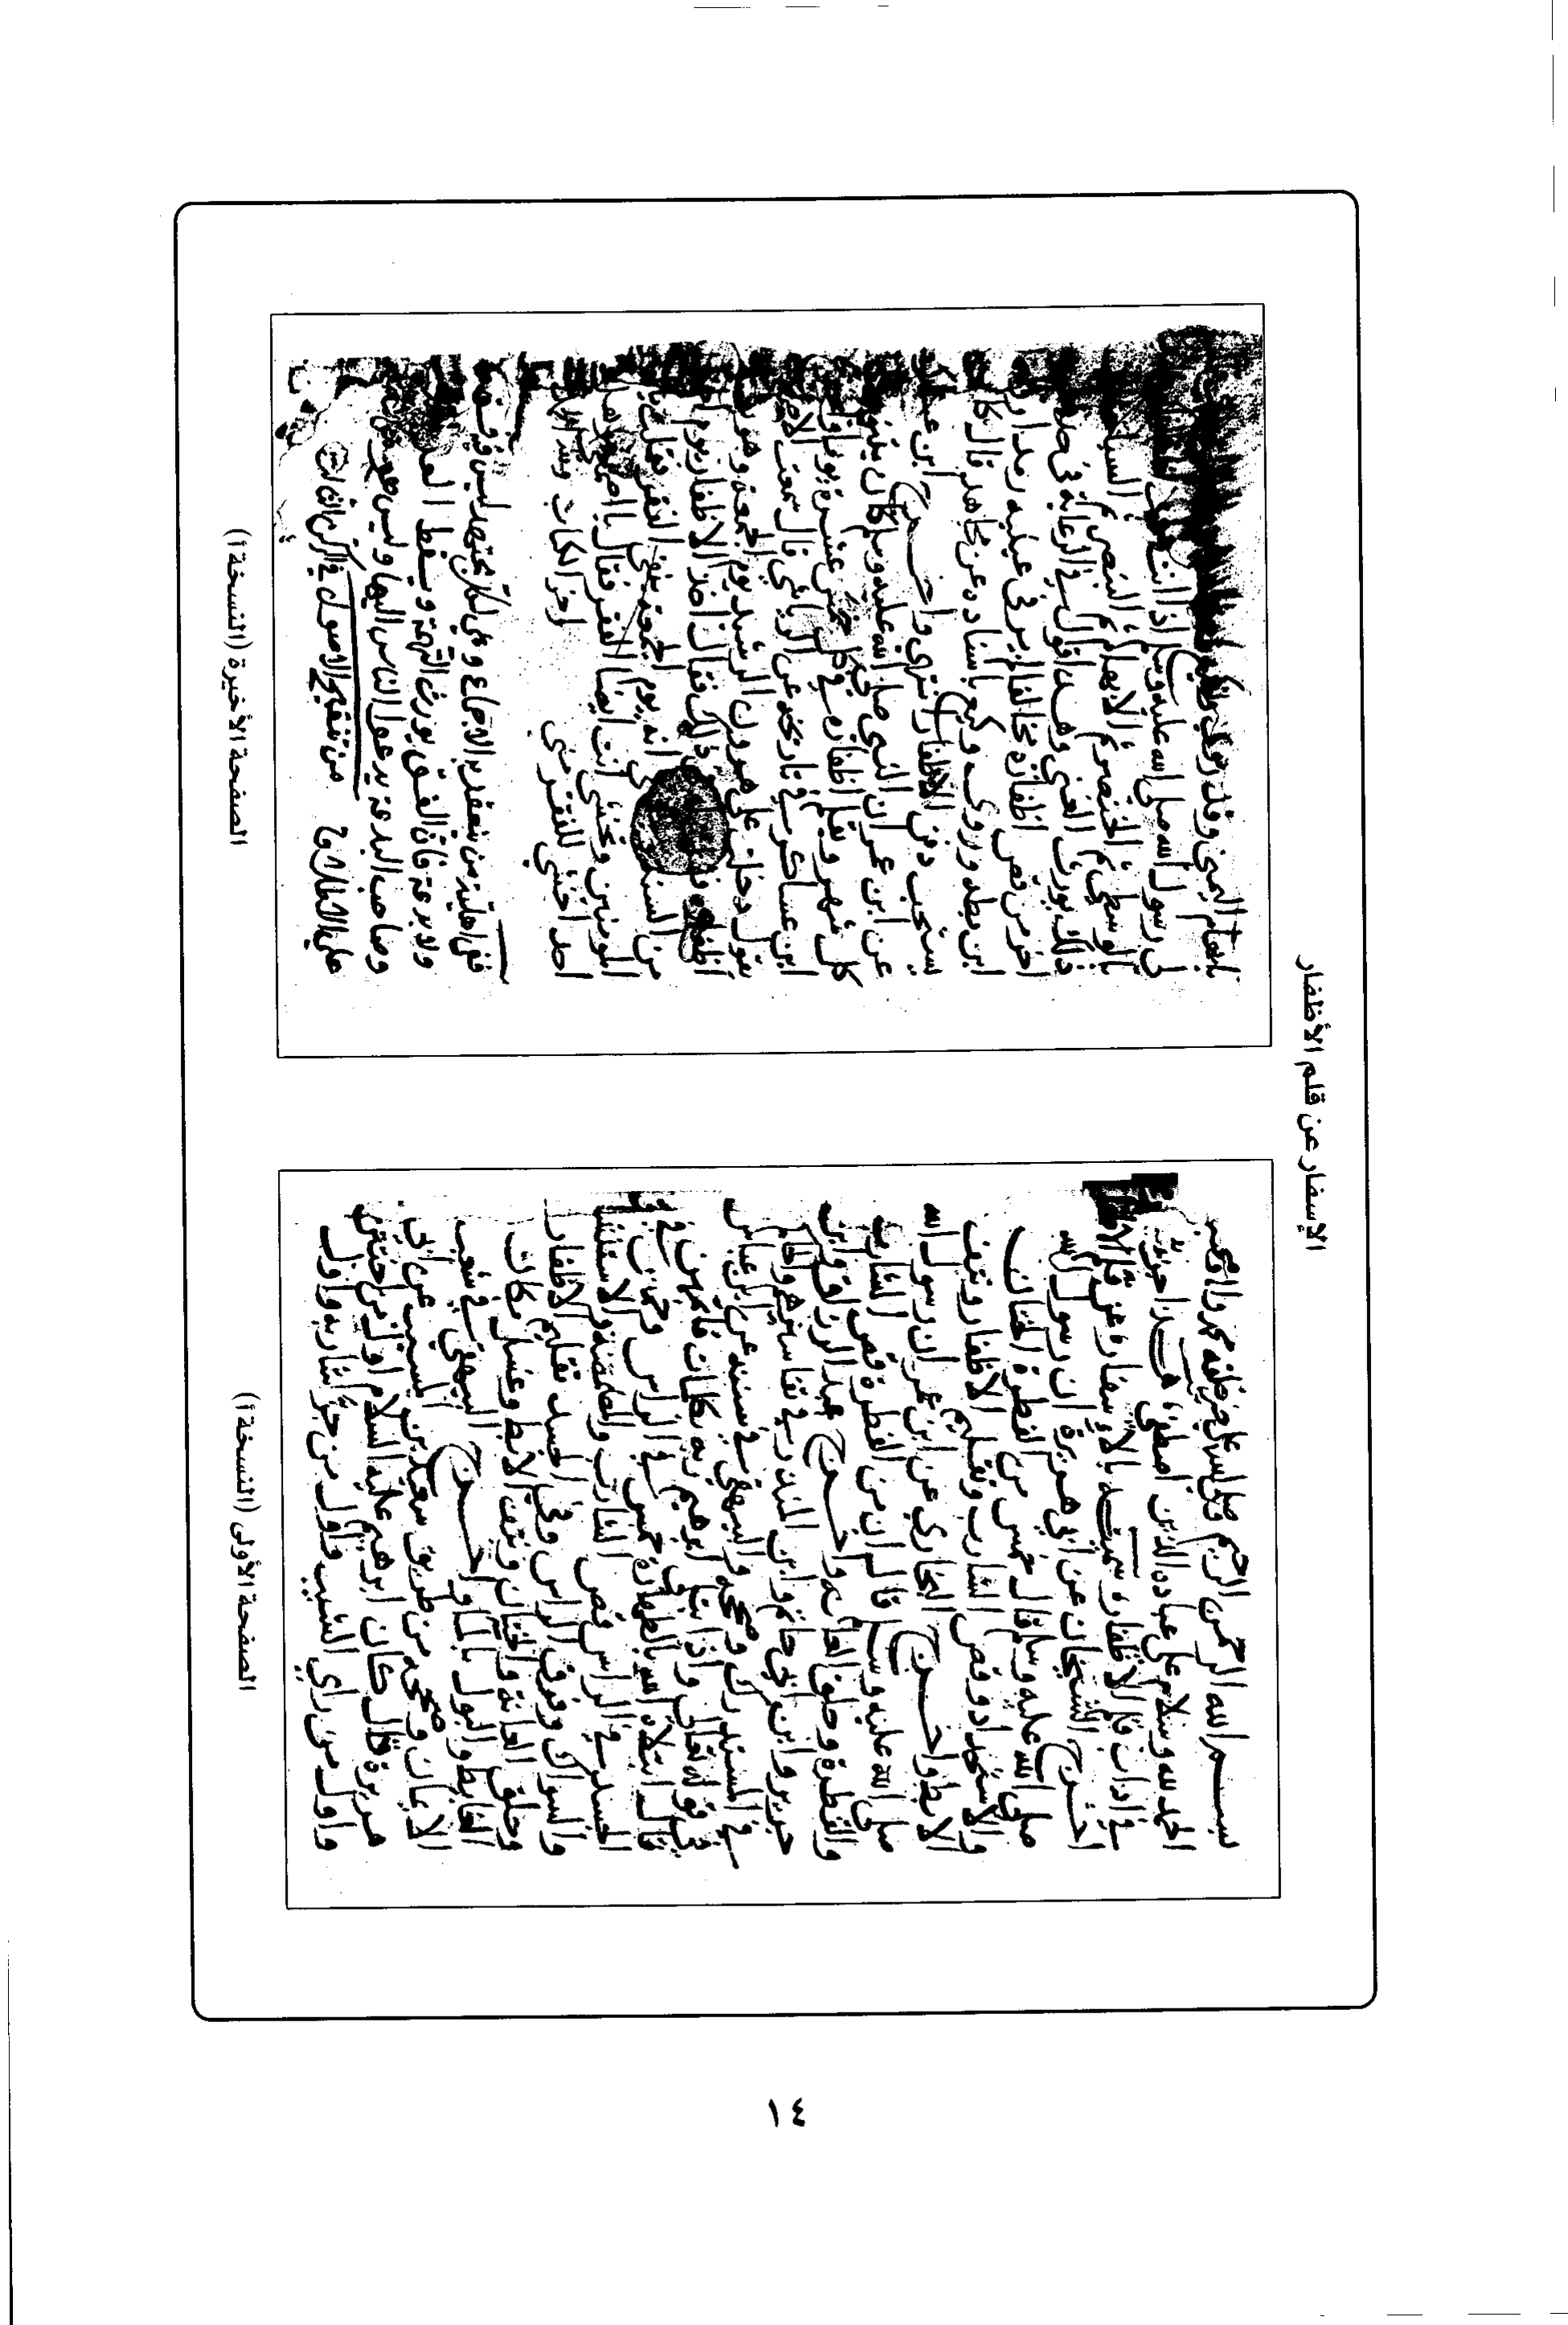 الإسفار عن قلم الأظفار
بسم الله الرحمن الرحيم صلى الله على خير خلقه محمد واله وصحبه
الحمد لله وسلام على عباده الذين اصطفى هذا جزء
في اداب قلم الاظفار سميته بالاسفار عن قلم الاظفار
اخرج الشيخان عن ابي هريرة ان رسول الله
صلى الله عليه وسلم قال خمس من الفطرة الختان
والاستحداد وقص الشارب وتقليم الاظفار ونتف
الابط واخرج البخاري عن ابن عمر ان رسول الله
صلى الله عليه وسلم قال ان من الفطرة قص الشارب
والظفر وحلق العانة واخرج عبد الرزاق وابن
جرير وابن ابي حاتم وابن المنذر في تفاسيرهم والحاكم
في المستدرك وصححه والبيهقي في سننه عن ابن عباس
في قوله تعالى واذ ابتلى ابرهيم ربه بكلمات فاتمهن
قال ابتلاه الله بالطهارة خمس في الراس وخمس في
الجسد في الراس قص الشارب والمضمضة والاستنشاق
والسواك وفرق الراس وفي الجسد تقليم الاظفار
وحلق العانة والختان ونتف الابط وغسل مكان
الغايط والبول بالماء واخرج البيهقي في شعب
الايمان وصححه من طريق سعيد بن المسيب عن ابي
هريرة قال كان ابرهيم عليه السلام اول من اختتن
واول من راى الشيب واول من جز شاربه واول
الصفحة الأولى (النسخة أ)
بابهام اليمنى وقد روى
لي رسول الله صلى الله عليه وسلم اذا انت
بالوسطى ثم الخنصر ثم الابهام ثم البنصر ثم السبابة
ذلك يورث الغنى وهـ اقول في الرعاية في صـ
اخر من قص اظفاره مخالفا لم ير في عينيه رمدا
ابن بطه وروى وكيع باسناده عن مجاهد قال كان
يستحب دفن الاظفار انتهى واخرج ابن
عن ابن عمر ان النبي صلى الله عليه وسلم كان يتنور
كل شهر ويقلم اظفاره في كل خمس عشرة يوما
ابن عساكر في تاريخه عن الرياشي قال سمعت الاصمعي
يقول دخلت على هرون الرشيد يوم الجمعة وهو
اظفاره ذلك فقال اخذ الاظفار يوم
من السنة انه يوم الجمعة ينفي الفقر فقلت يا
المومنين وتخشى انت ايضا الفقر فقال يا اصمعي وهل
احد اخشى للفقر مني اخر الكتاب ولله الحمد
ففي اهليته من ينعقد به الاجماع وهي لكل مجتهد ليس
ولا بدعة فان الفسق يورث التهمة ويسقط العدالة
وصاحب البدعة يدعوا الناس اليها وليس هو من
على الاطلاق من تنقيح الاصول في الركن الثالث
الصفحة الأخيرة (النسخة أ)
١٤